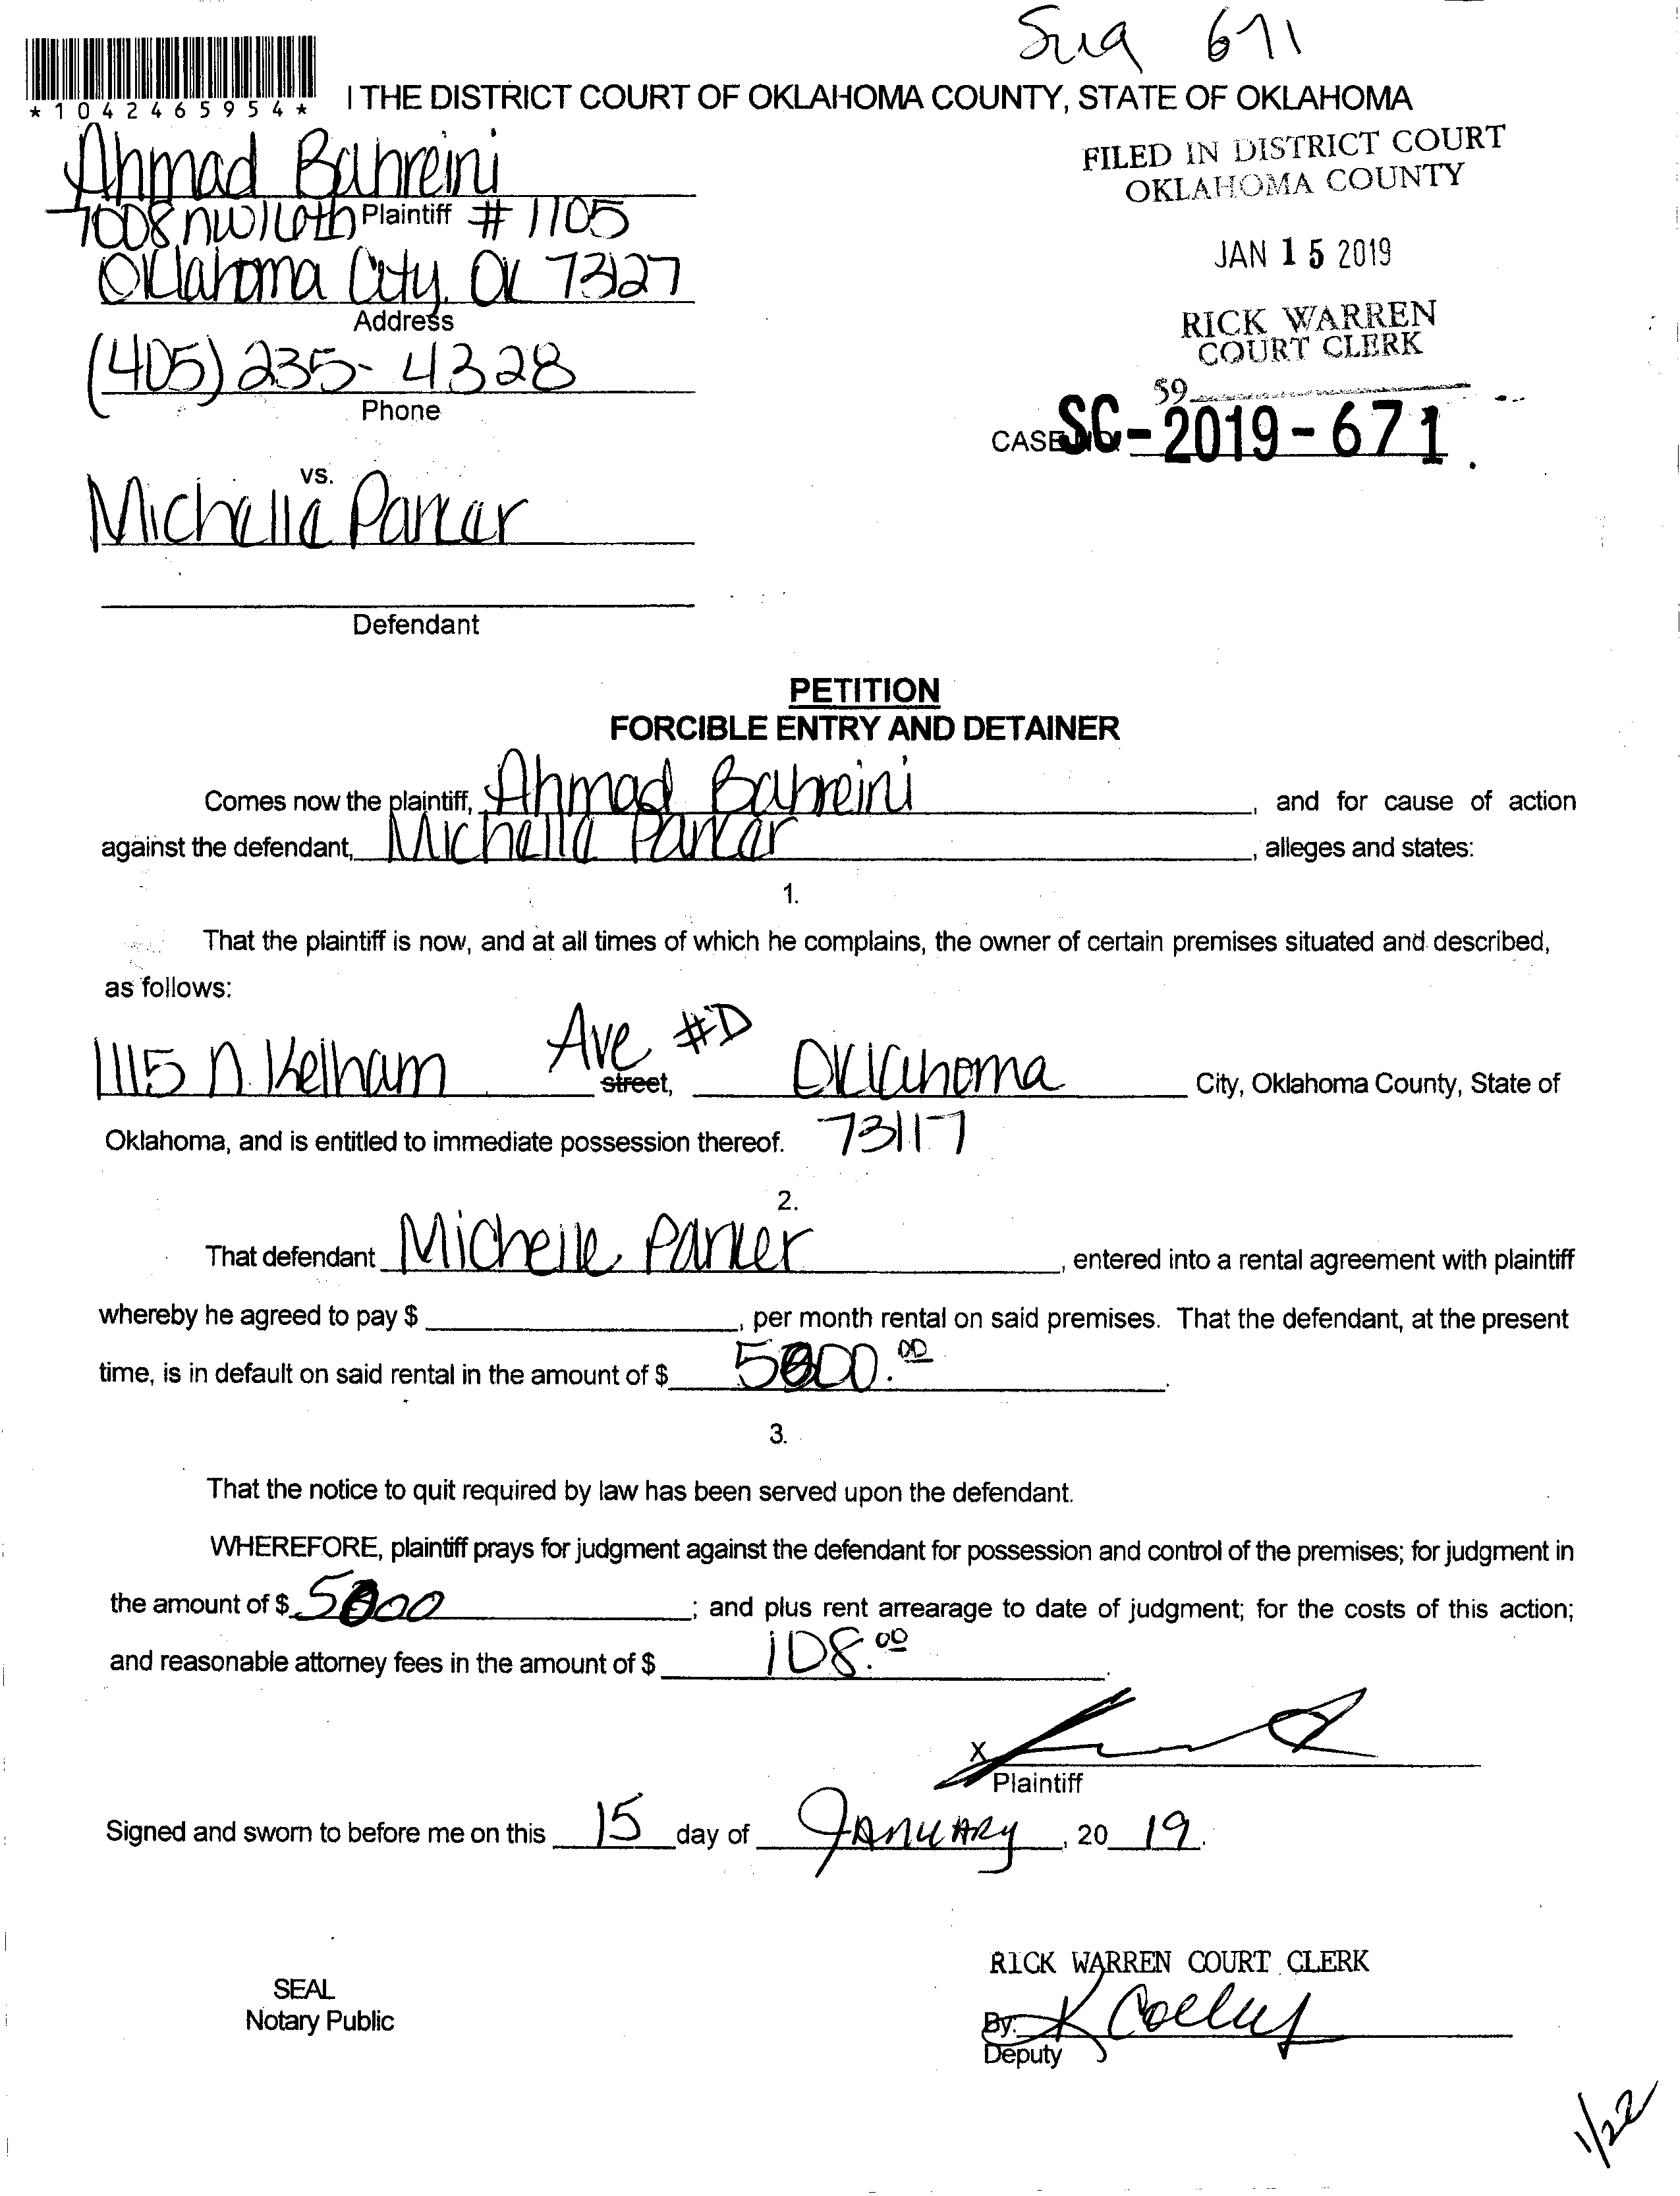 Sug 671
*1042465954*
I THE DISTRICT COURT OF OKLAHOMA COUNTY, STATE OF OKLAHOMA
FILED IN DISTRICT COURT
OKLAHOMA COUNTY
JAN 15 2019
RICK WARREN
COURT CLERK
59
CASE NO. SC-2019-671
Ahmad Bahreini
Plaintiff
7008 NW 16th #1105
Oklahoma City, OK 73127
Address
(405) 235-4328
Phone
vs.
Michelle Parker
Defendant
PETITION
FORCIBLE ENTRY AND DETAINER
Comes now the plaintiff, Ahmad Bahreini, and for cause of action
against the defendant, Michelle Parker, alleges and states:
1.
That the plaintiff is now, and at all times of which he complains, the owner of certain premises situated and described,
as follows:
1115 N. Kelham Ave #D street, Oklahoma City, Oklahoma County, State of
Oklahoma, and is entitled to immediate possession thereof. 73117
2.
That defendant Michelle Parker, entered into a rental agreement with plaintiff
whereby he agreed to pay $, per month rental on said premises. That the defendant, at the present
time, is in default on said rental in the amount of $ 5000.00.
3.
That the notice to quit required by law has been served upon the defendant.
WHEREFORE, plaintiff prays for judgment against the defendant for possession and control of the premises; for judgment in
the amount of $ 5000; and plus rent arrearage to date of judgment; for the costs of this action;
and reasonable attorney fees in the amount of $ 108.00.
X
Plaintiff
Signed and sworn to before me on this 15 day of January, 20 19.
RICK WARREN COURT CLERK
SEAL
Notary Public
By: K
Deputy
1/22